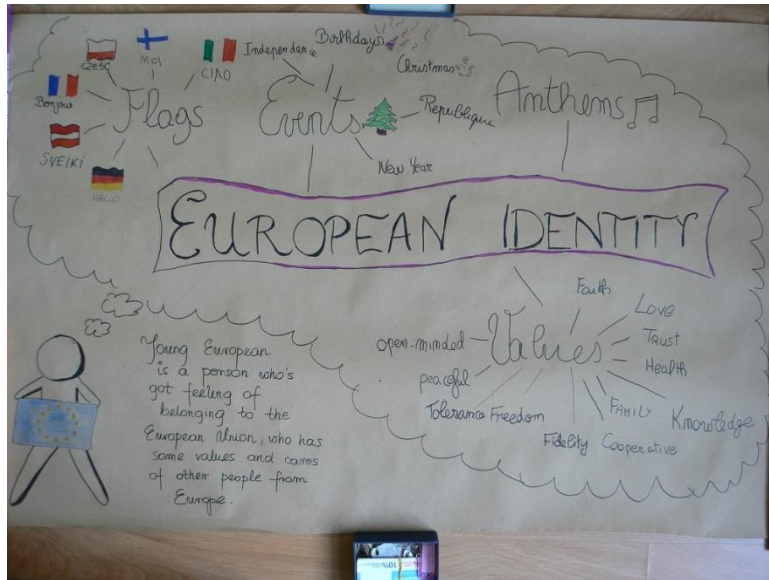 CZEŚĆ
MOI
CIAO
Bonjour
SVEIKI
HALLO
Flags
Independance
Birthdays
Christmas
Events
Republique
New Year
Anthems
EUROPEAN IDENTITY
Values
Faith
Love
Trust
Health
Knowledge
FAMILY
Cooperative
Fidelity
Freedom
Tolerance
peaceful
open-minded
Young European
is a person who's
got feeling of
belonging to the
European Union, who has
some values and cares
of other people from
Europe.
10%